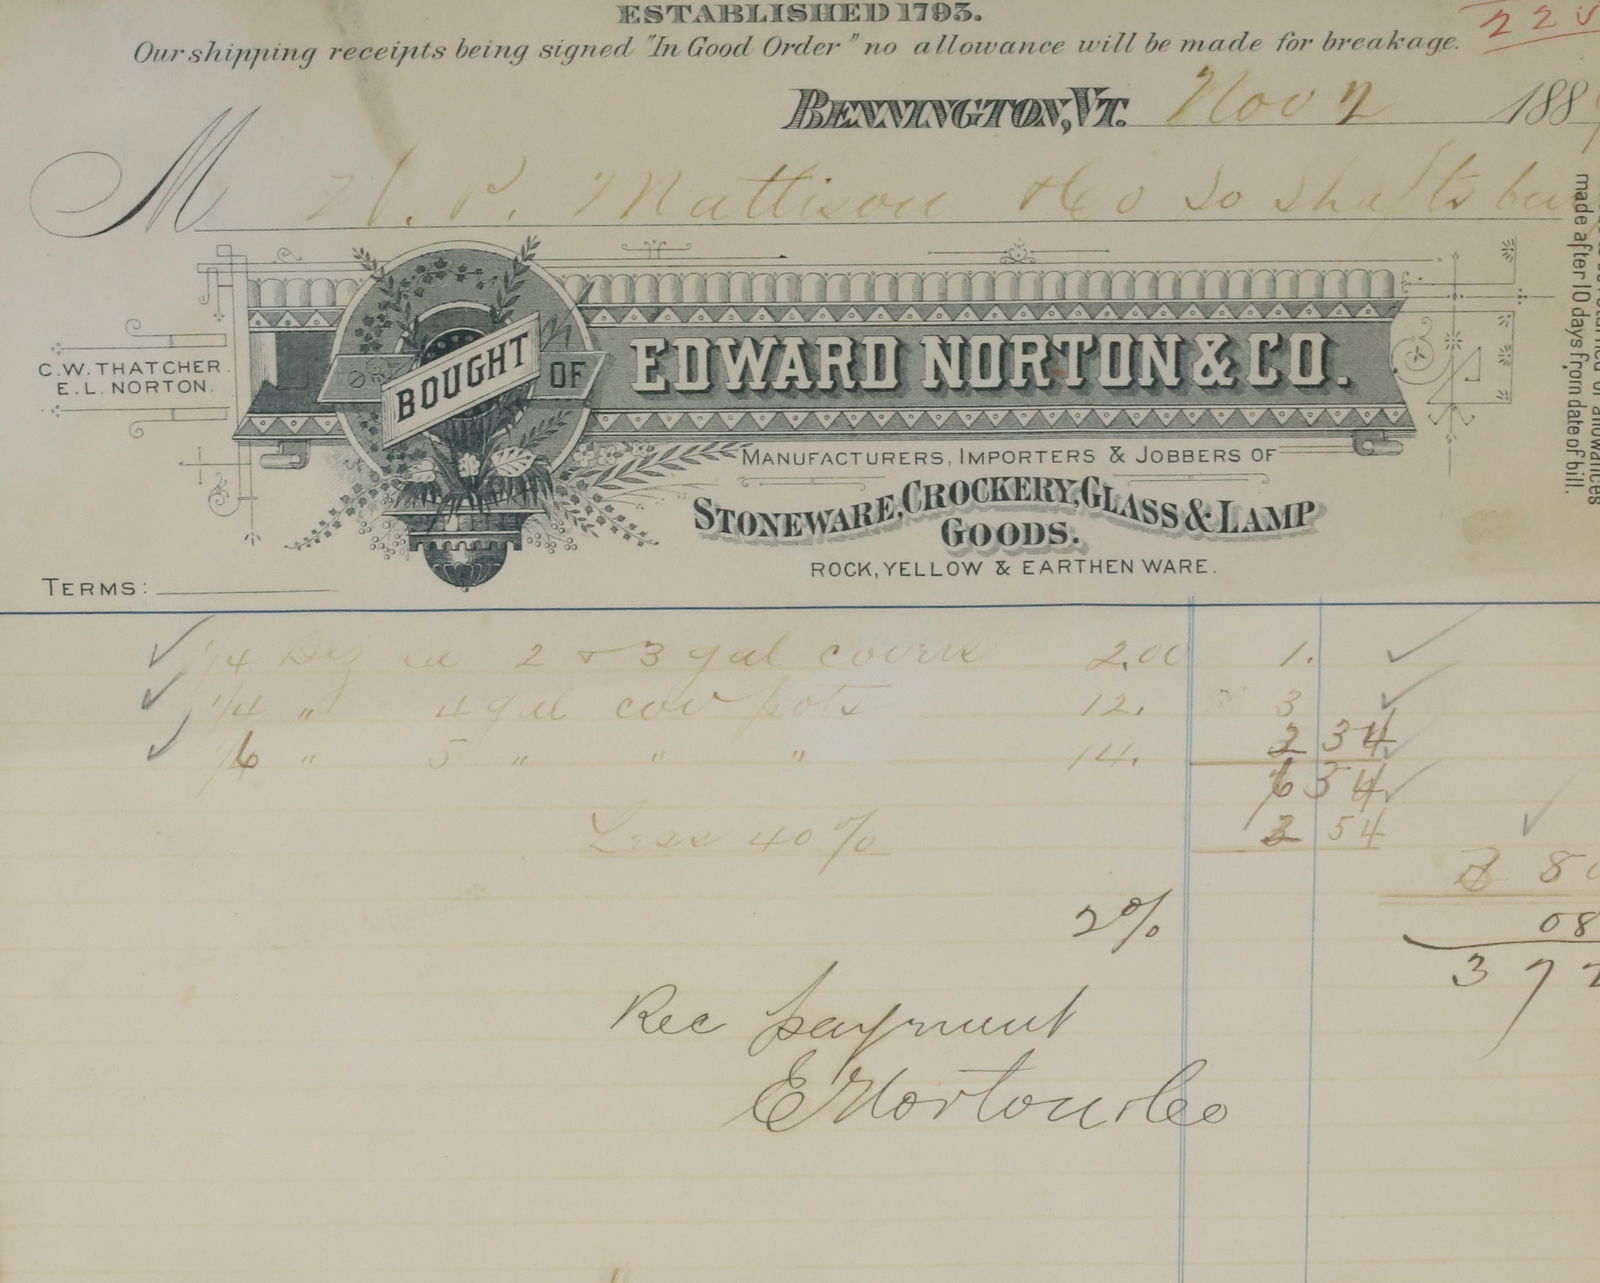 ESTABLISHED 1793.
Our shipping receipts being signed "In Good Order" no allowance will be made for breakage.
BENNINGTON, VT. Nov 2 188
M H. P. Mattison & Co So Shaftsbu
made after 10 days from date of bill.
C. W. THATCHER.
E. L. NORTON.
BOUGHT OF EDWARD NORTON & CO.
MANUFACTURERS, IMPORTERS & JOBBERS OF
STONEWARE, CROCKERY, GLASS & LAMP
GOODS.
ROCK, YELLOW & EARTHEN WARE.
TERMS:
1/4 Dz ea 2 & 3 gal covers 2.00 1.
1/4 " 4 gal cov pots 12. 3
1/6 " 5 " " " 14. 2 34
6 34
Less 40% 2 54
3 80
2% 08
3 72
Rec payment
E Norton & Co